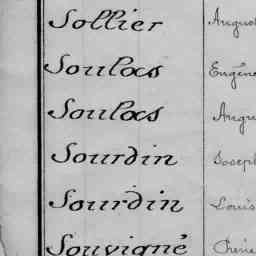 Sollier
Soulas Eugène
Soulas
Sourdin Joseph
Sourdin Louis
Souvigné